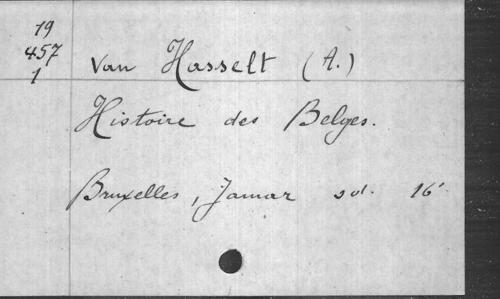 19
457
1
Van Hasselt (A.)
Histoire des Belges.
Bruxelles, Jamar sd. 16°